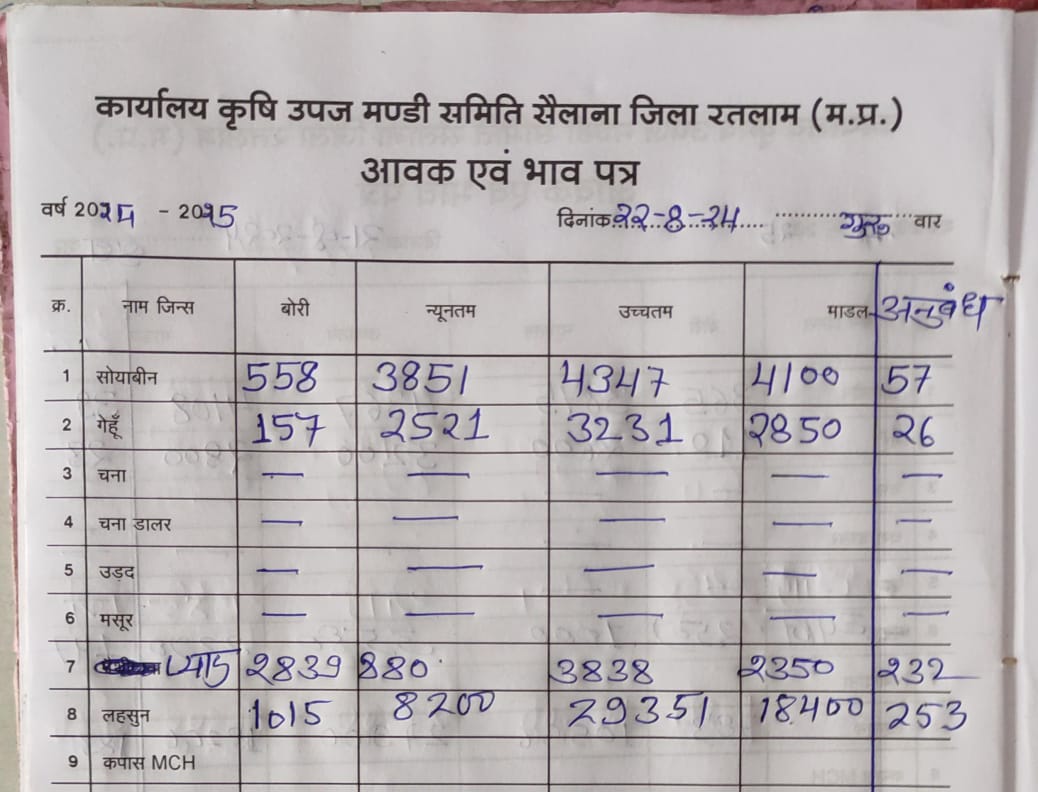 कार्यालय कृषि उपज मण्डी समिति सैलाना जिला रतलाम (म.प्र.)
आवक एवं भाव पत्र
वर्ष 2024 - 2025 दिनांक 22-8-24 गुरु वार
क्र. नाम जिन्स बोरी न्यूनतम उच्चतम माडल अनुबंध
1 सोयाबीन 558 3851 4347 4100 57
2 गेहूँ 157 2521 3231 2850 26
3 चना — — — — —
4 चना डालर — — — — —
5 उड़द — — — — —
6 मसूर — — — — —
7 प्याज 2839 880 3838 2350 232
8 लहसुन 1015 8200 29351 18400 253
9 कपास MCH